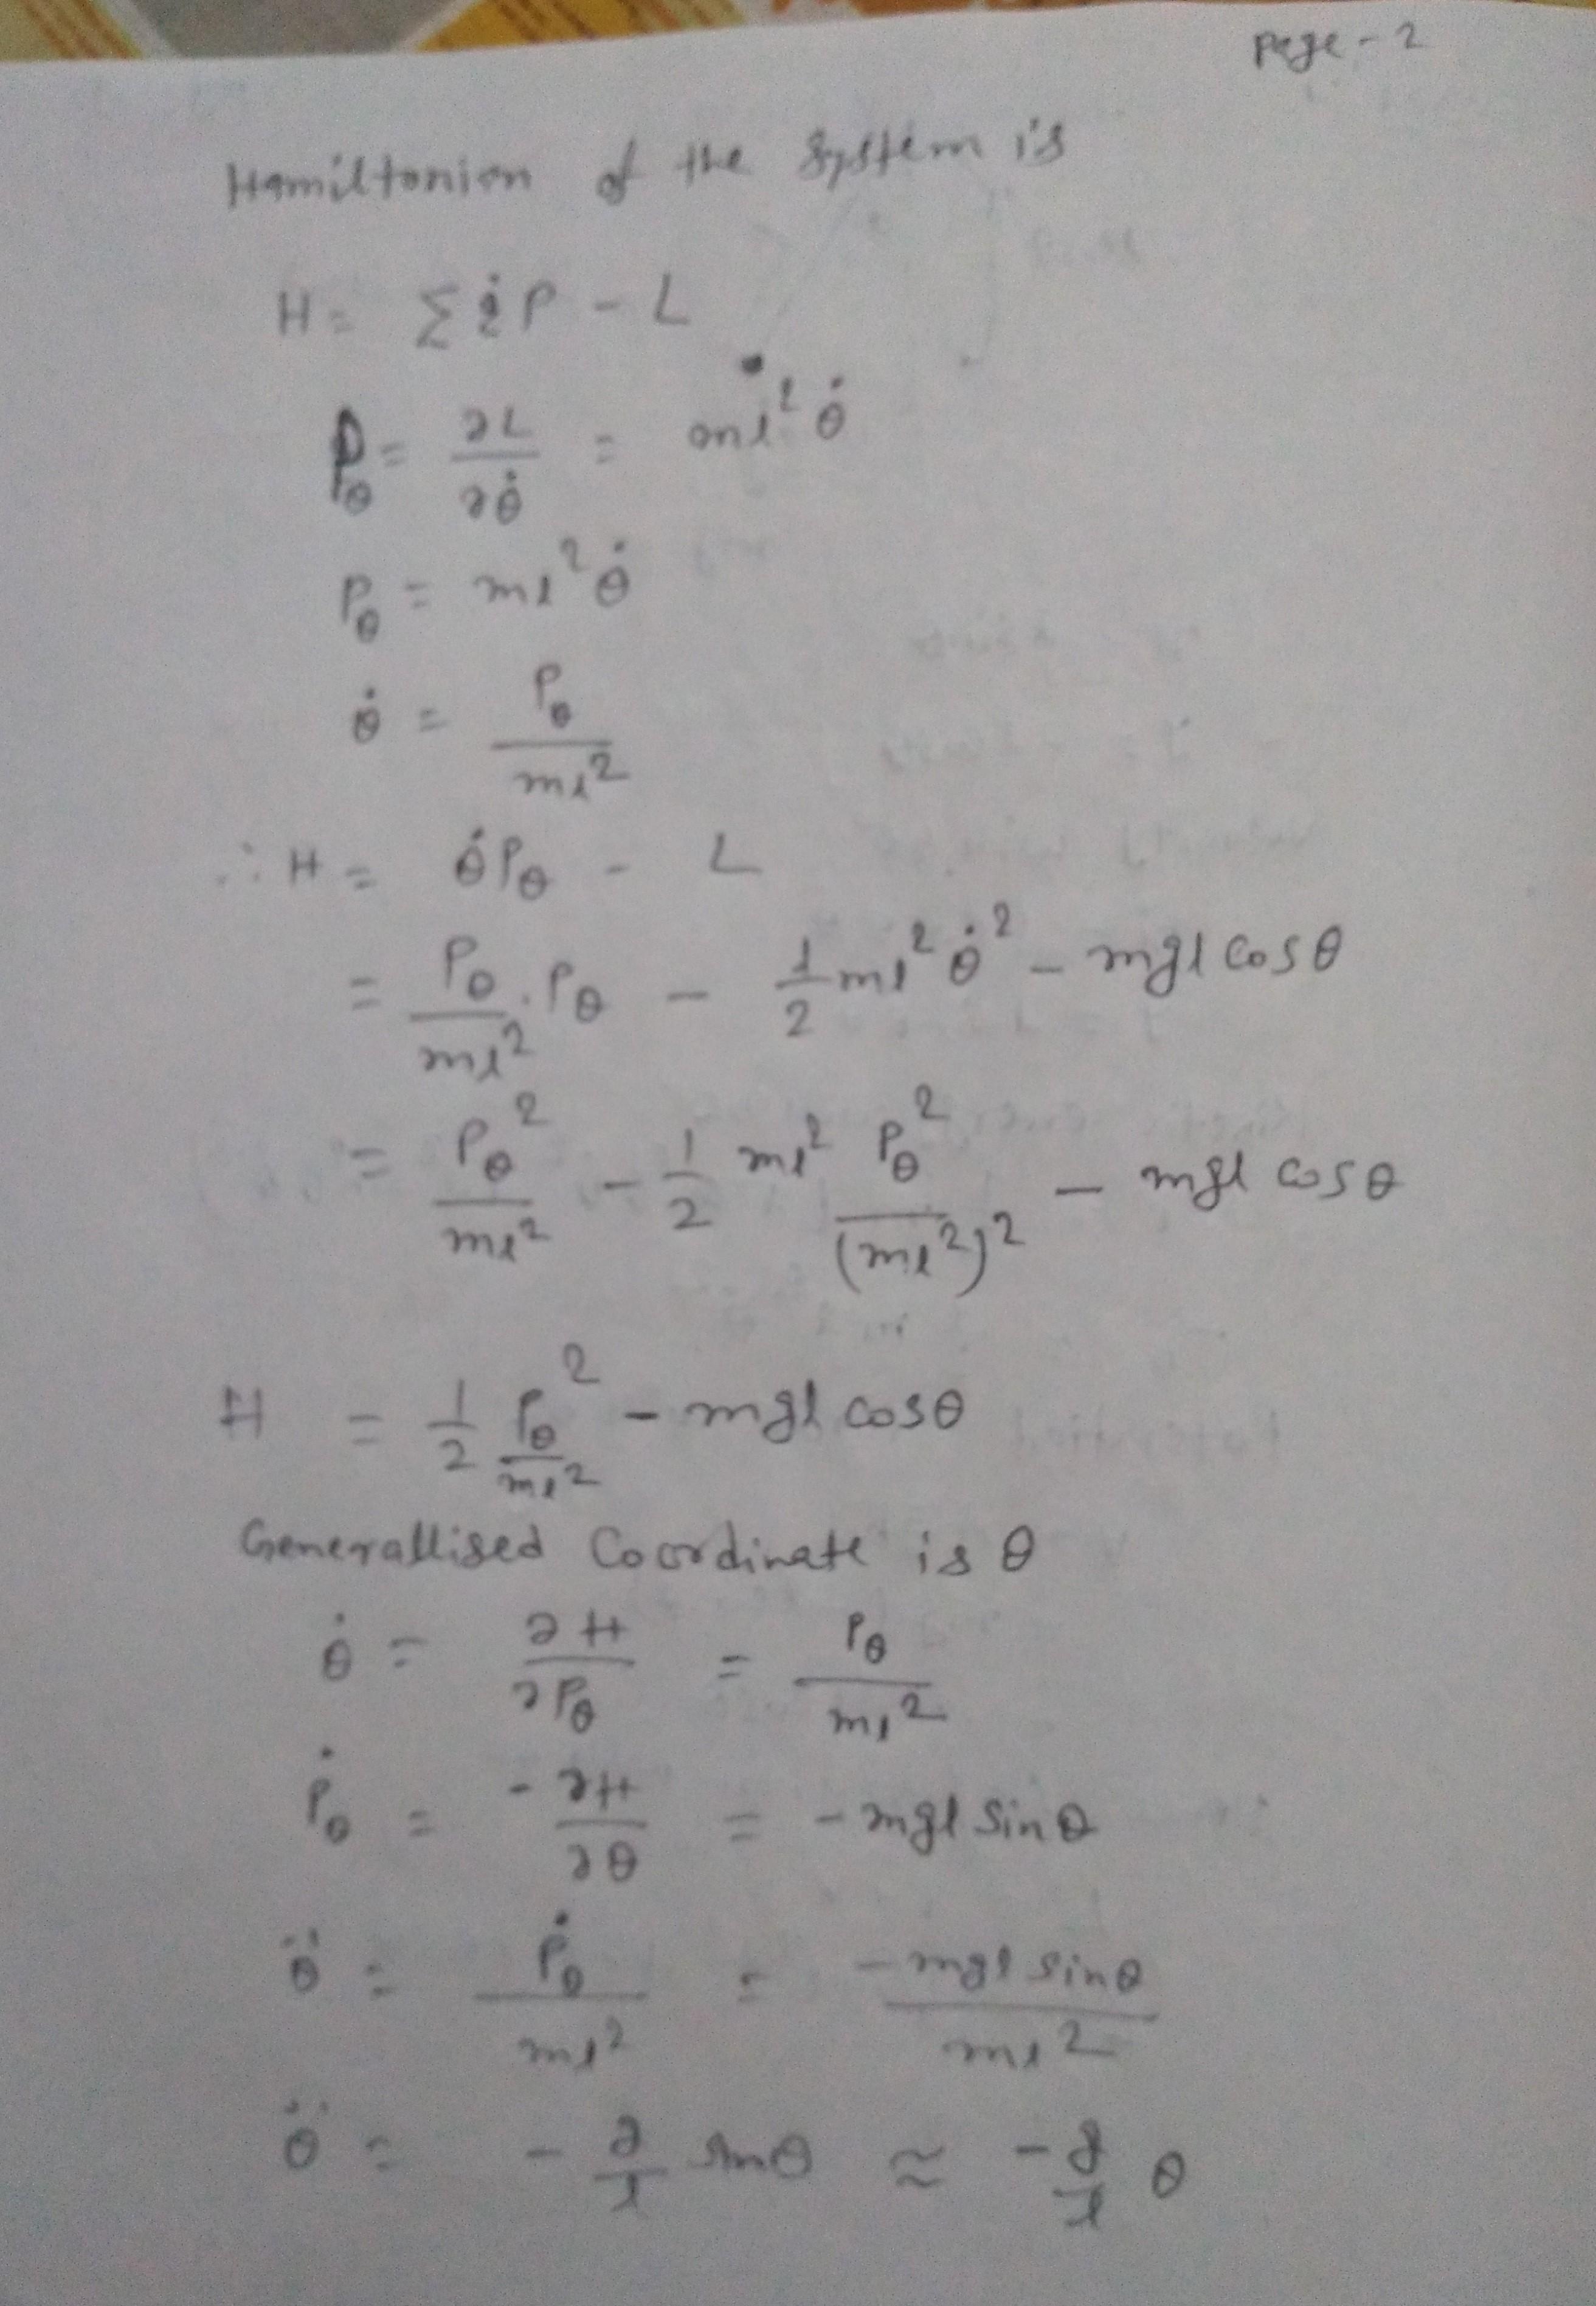 Page - 2
Hamiltonion of the system is
H = Σ q̇ P - L
P_θ = ∂L/∂θ̇ = ml² θ̇
P_θ = ml² θ̇
θ̇ = P_θ / ml²
∴ H = θ̇ P_θ - L
= P_θ/ml² . P_θ - 1/2 ml² θ̇² - mgl cos θ
= P_θ²/ml² - 1/2 ml² P_θ²/(ml²)² - mgl cos θ
H = 1/2 P_θ²/ml² - mgl cos θ
Generallised Coordinate is θ
θ̇ = ∂H/∂P_θ = P_θ/ml²
Ṗ_θ = -∂H/∂θ = - mgl Sin θ
θ̈ = Ṗ_θ/ml² = -mgl sin θ/ml²
θ̈ = - g/l sin θ ≈ - g/l θ